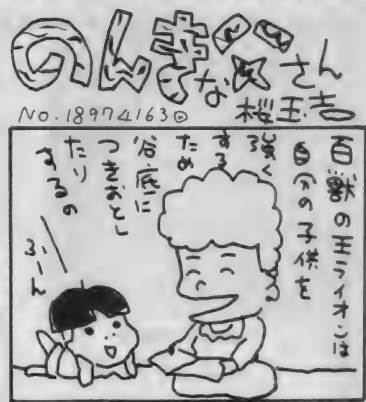 のんきな父さん
No.18974163◎
桜玉吉
百獣の王ライオンは
自分の子供を
強く
する
ため
谷底に
つきおとし
たり
するの
ふーん